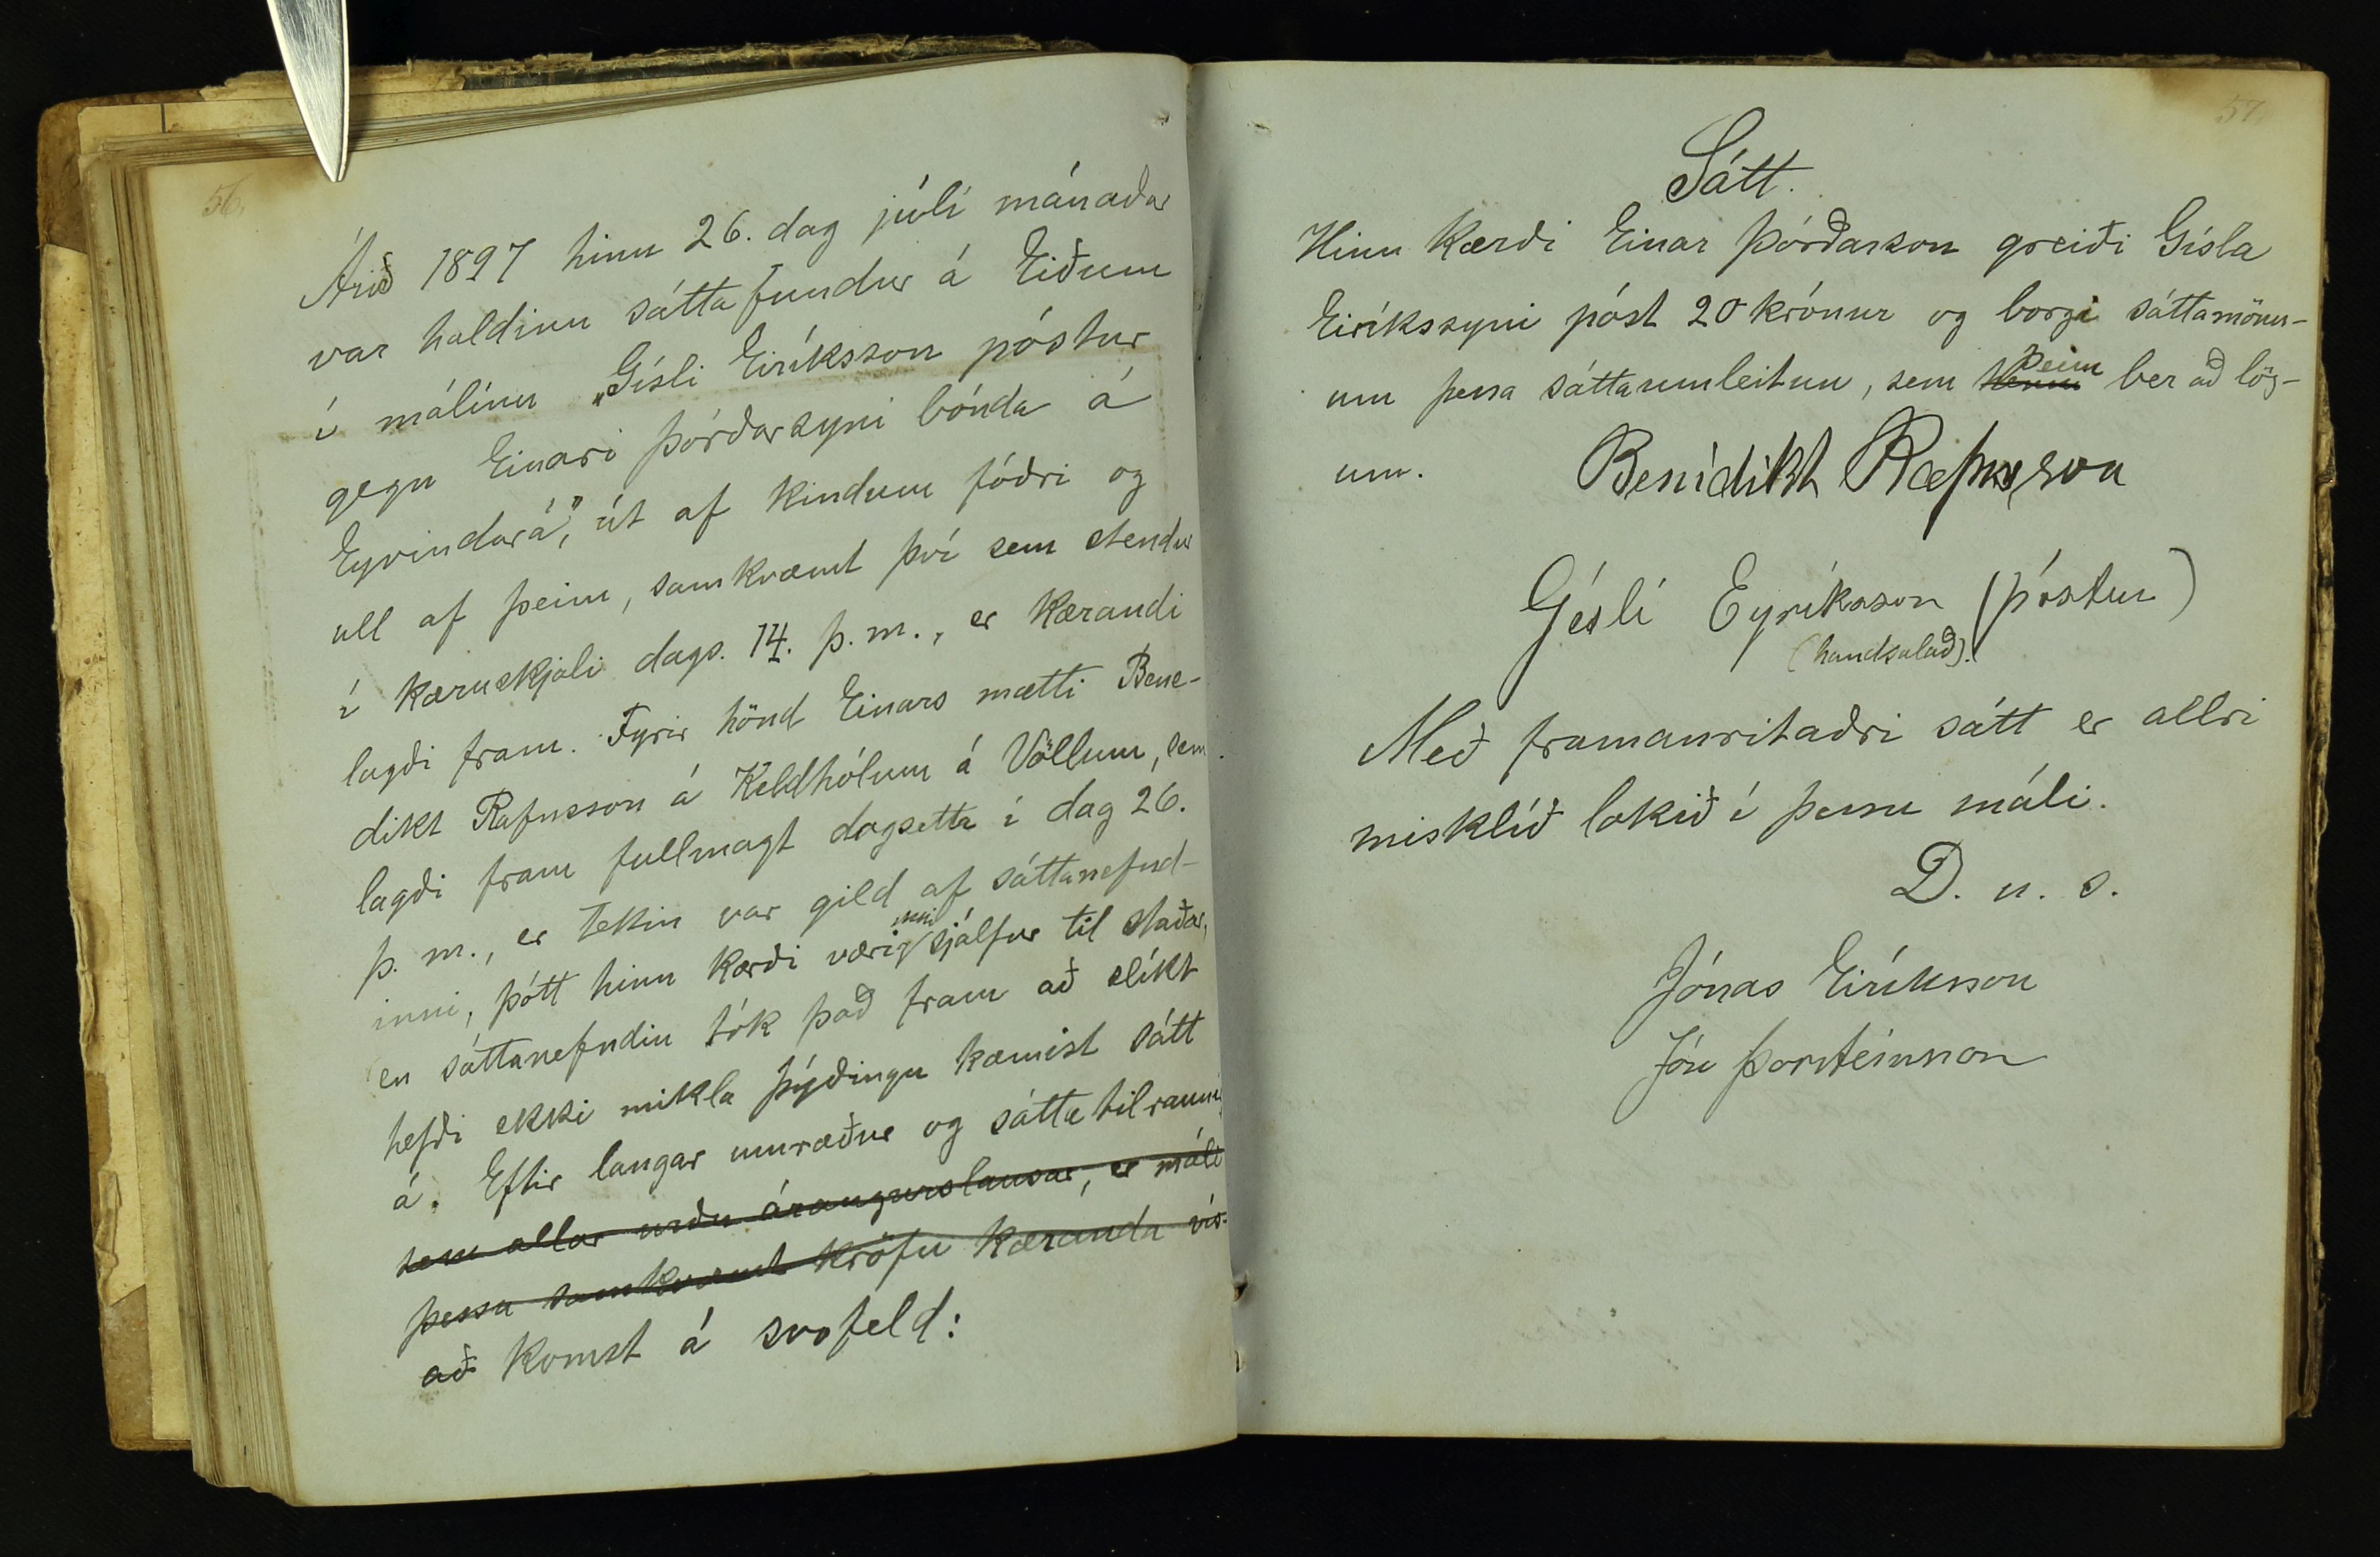 56.
Árið 1897 hinn 26. dag júlí mánaðar
var haldinn sáttafundur á Eiðum
í málinu „Gísli Eiríksson póstur
gegn Einari Þórðarsyni bónda á
Eyvindará", út af kindum fóðri og
ull af þeim, samkvæmt því sem stendur
í kæruskjali dags. 14. þ. m., er kærandi
lagði fram. Fyrir hönd Einars mætti Bene-
dikt Rafnsson á Keldhólum á Völlum, sem
lagði fram fullmagt dagsetta í dag 26.
þ. m., er tekin var gild af sáttanefnd-
inni, þótt hinn kærði væri sjálfur til staðar,
en sáttanefndin tók það fram að slíkt
hefði ekki mikla þýðingu kæmist sátt
á. Eftir langar umræður og sátta tilraunir
sem allar urðu árangurslausar, er máli
þessu samkvæmt kröfu kæranda vís-
að komst á svofeld:
57.
Sátt.
Hinn kærði Einar Þórðarson greiði Gísla
Eiríkssyni póst 20 krónur og borgi sáttamönn-
um þessa sáttaumleitun, sem þeim ber að lög-
um. Benidikt Rafnsson
Gísli Eyríksson (póstur)
(handsalað).
Með framanritaðri sátt er allri
misklíð lokið í þessu máli.
D. u. s.
Jónas Eiríksson
Jón Þorsteinsson